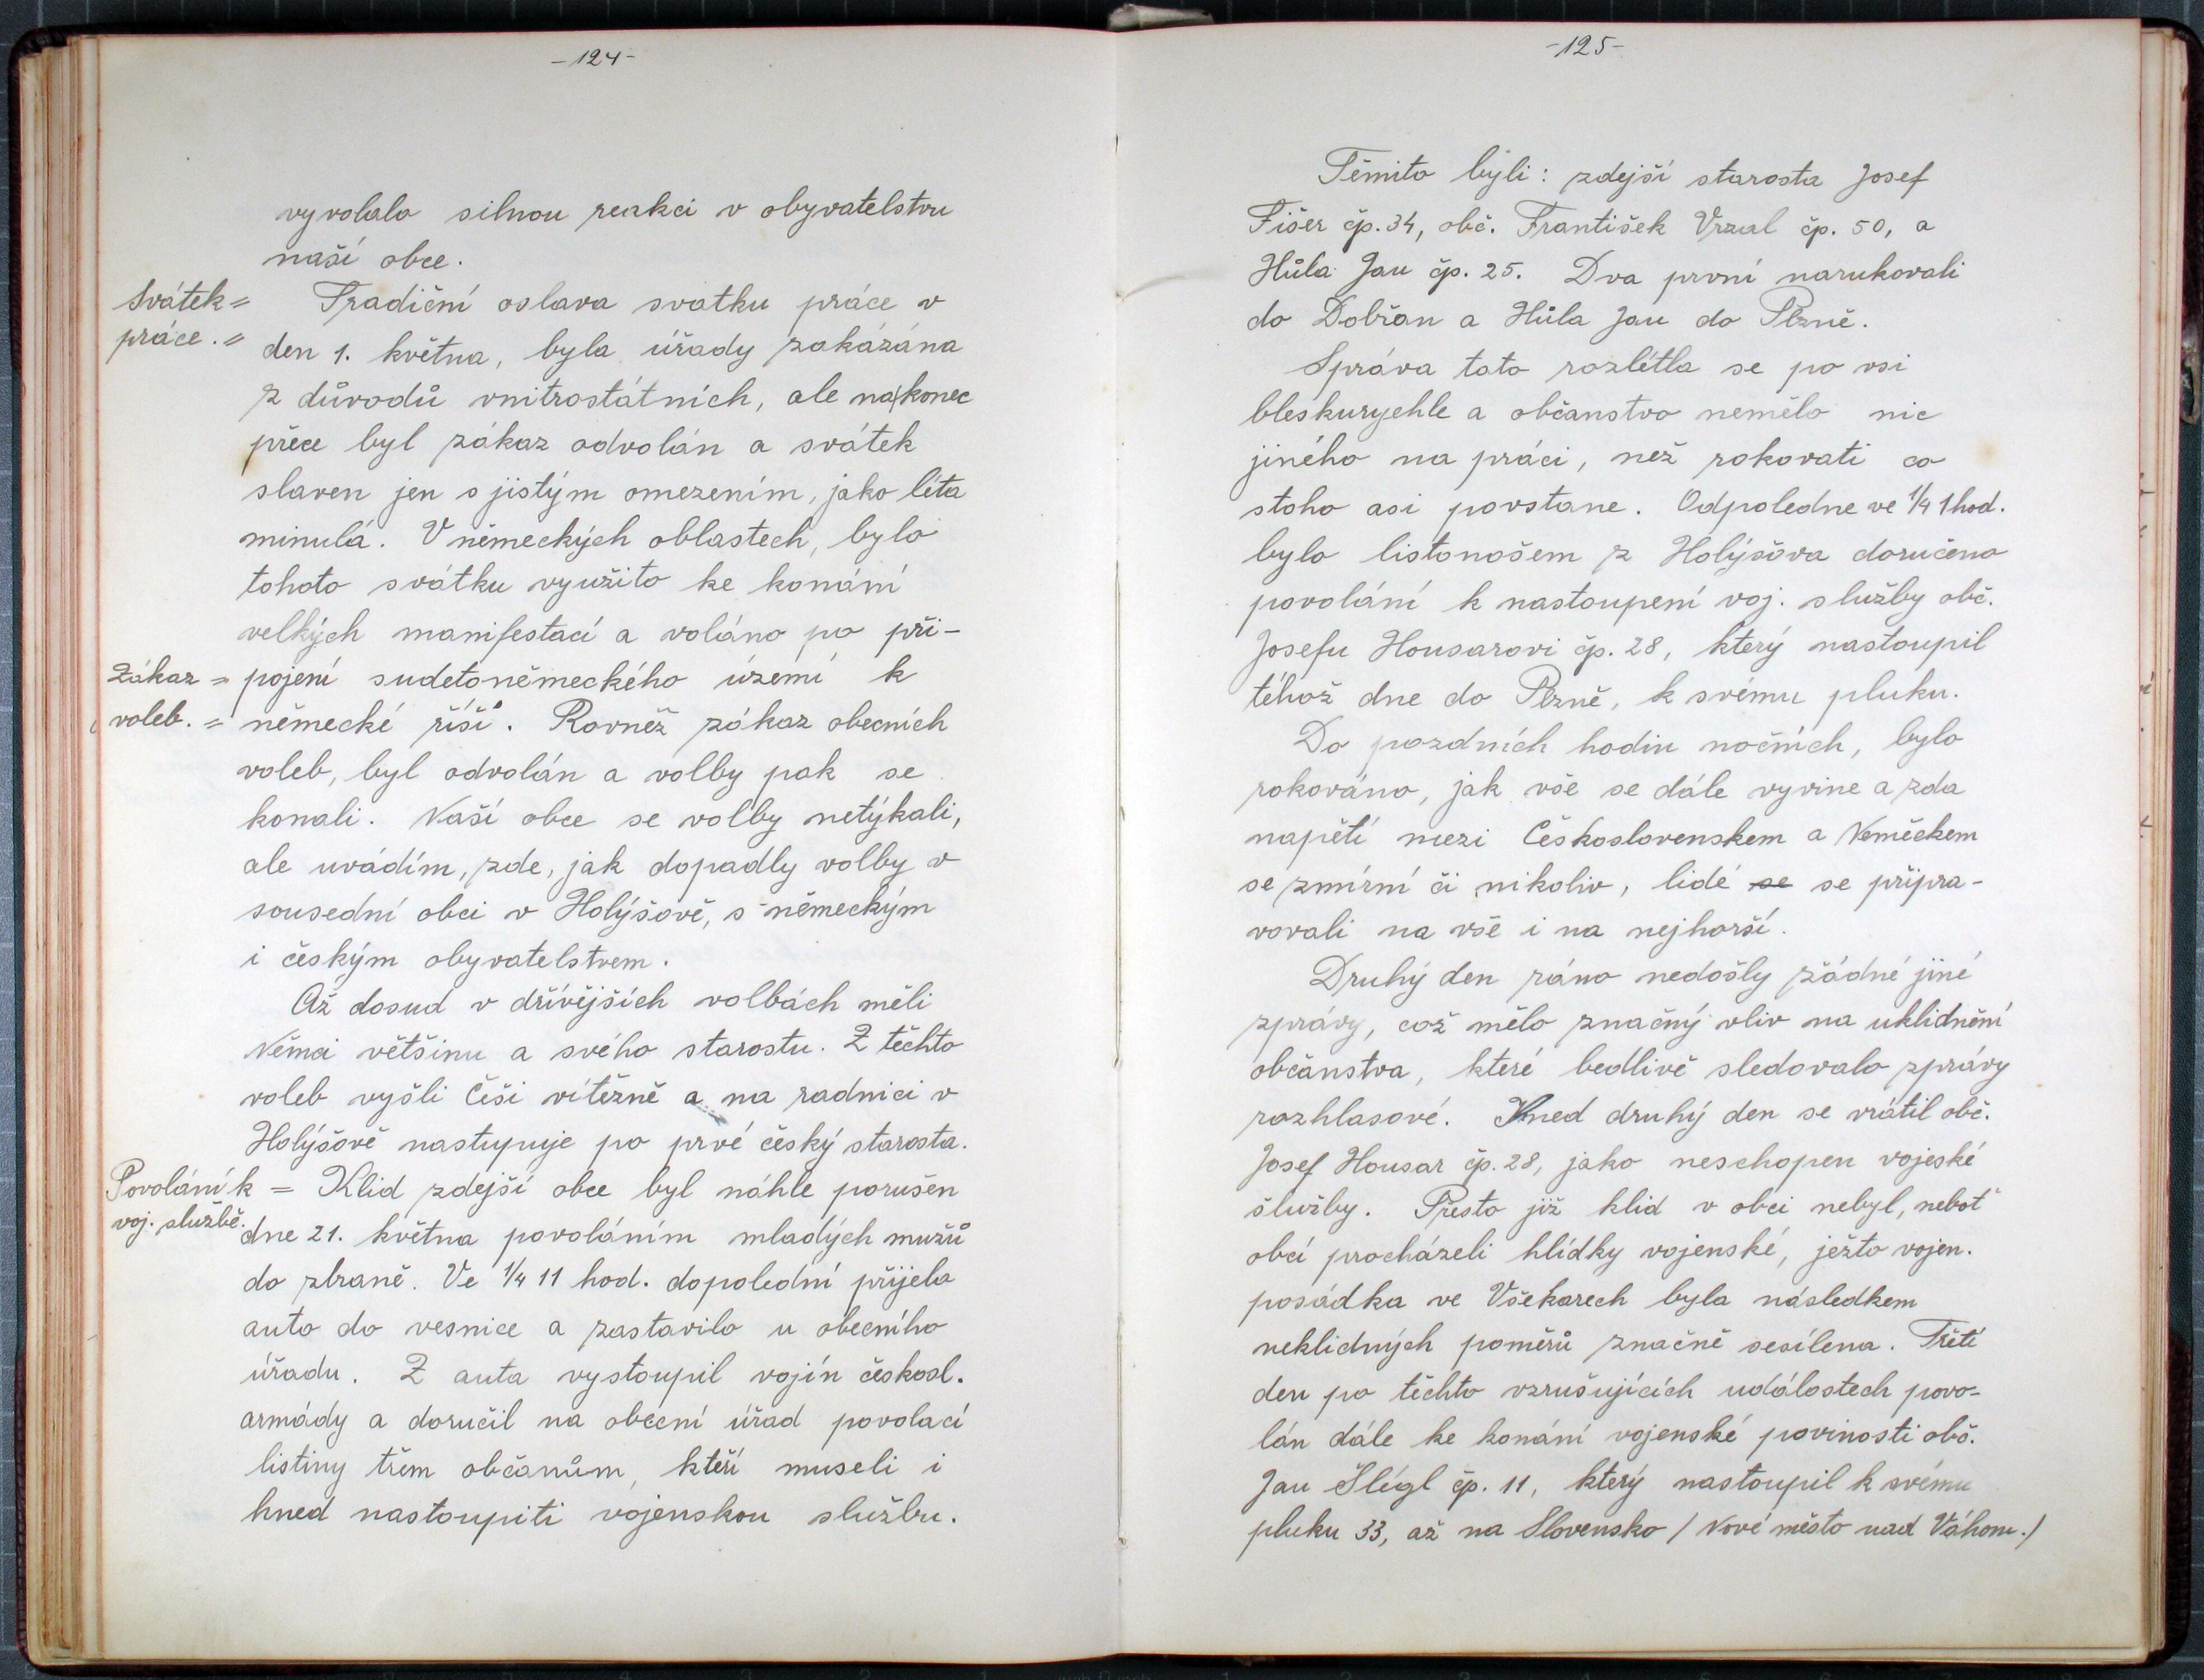 -124-
vyvolalo silnou reakci v obyvatelstvu
naší obce.
Svátek =
práce. =
Tradiční oslava svatku práce v
den 1. května, byla úřady zakázána
z důvodů vnitrostátních, ale na|konec
přece byl zákaz odvolán a svátek
slaven jen s jistým omezením, jako léta
minulá. V německých oblastech, bylo
tohoto svátku využito ke konání
velkých manifestací a voláno po při-
Zákaz =
voleb. =
pojení sudetoněmeckého území k
německé říši. Rovněž zákaz obecních
voleb, byl odvolán a volby pak se
konali. Naší obce se volby netýkali,
ale uvádím, zde, jak dopadly volby v
sousední obci v Holýšově, s německým
i českým obyvatelstvem.
Až dosud v dřívějších volbách měli
Němci většinu a svého starostu. Z těchto
voleb vyšli Češi vítězně a na radnici v
Holýšově nastupuje po prvé český starosta.
Povolání k =
voj. službě.
Klid zdejší obce byl náhle porušen
dne 21. května povoláním mladých mužů
do zbraně. Ve 1/4 11 hod. dopolední přijelo
auto do vesnice a zastavilo u obecního
úřadu. Z auta vystoupil vojín českosl.
armády a doručil na obecní úřad povolací
listiny třem občanům, kteří museli i
hned nastoupiti vojenskou službu.
-125-
Těmito byli: zdejší starosta Josef
Fišer čp. 34, obč. František Vrzal čp. 50, a
Hůla Jan čp. 25. Dva první narukovali
do Dobřan a Hůla Jan do Plzně.
Správa tato rozlétla se po vsi
bleskurychle a občanstvo nemělo nic
jiného na práci, než rokovati co
stoho asi povstane. Odpoledne ve 1/4 1 hod.
bylo listonošem z Holýšova doručeno
povolání k nastoupení voj. služby obč.
Josefu Housarovi čp. 28, který nastoupil
téhož dne do Plzně, k svému pluku.
Do pozdních hodin nočních, bylo
rokováno, jak vše se dále vyvine a zda
napětí mezi Československem a Neměckem
se zmírní či nikoliv, lidé se se připra-
vovali na vše i na nejhorší.
Druhý den ráno nedošly žádné jiné
zprávy, což mělo značný vliv na uklidnění
občanstva, které bedlivě sledovalo zprávy
rozhlasové. Hned druhý den se vrátil obč.
Josef Housar čp. 28, jako neschopen vojeské
služby. Přesto již klid v obci nebyl, neboť
obcí procházeli hlídky vojenské, ježto vojen.
posádka ve Všekarech byla následkem
neklidných poměrů značně sesílena. Třetí
den po těchto vzrušujících událostech povo-
lán dále ke konání vojenské povinosti obč.
Jan Šlégl čp. 11, který nastoupil k svému
pluku 33, až na Slovensko / Nové město nad Váhom./